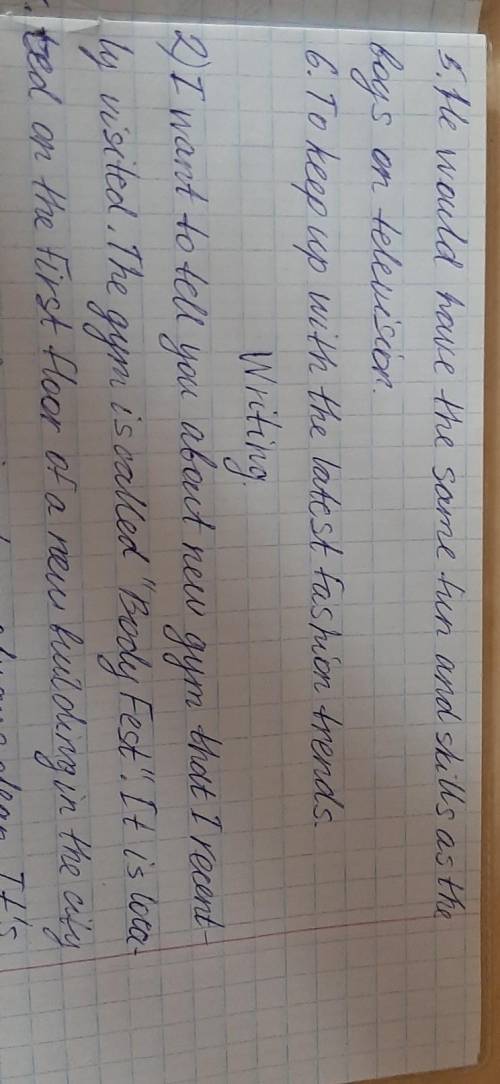 5. He would have the same fun and skills as the
boys on television.
6. To keep up with the latest fashion trends.
Writing.
2) I want to tell you about new gym that I recent-
ly visited. The gym is called "Body Fest". It is loca-
ted on the first floor of a new building in the city
always clean. It's